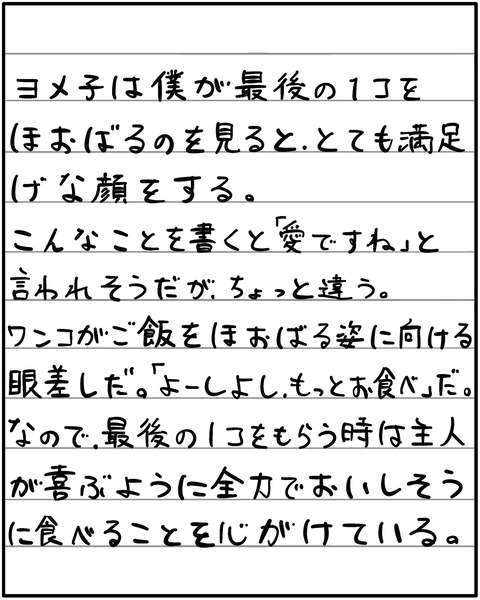 ヨメ子は僕が最後の1コを
ほおばるのを見ると、とても満足
げな顔をする。
こんなことを書くと「愛ですね」と
言われそうだが、ちょっと違う。
ワンコがご飯をほおばる姿に向ける
眼差しだ。「よーしよし、もっとお食べ」だ。
なので、最後の1コをもらう時は主人
が喜ぶように全力でおいしそう
に食べることを心がけている。